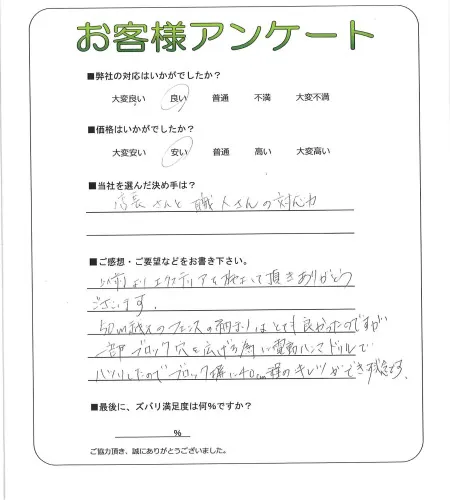 お客様アンケート
■弊社の対応はいかがでしたか？
大変良い 良い 普通 不満 大変不満
■価格はいかがでしたか？
大変安い 安い 普通 高い 大変高い
■当社を選んだ決め手は？
店長さんと職人さんの対応力
■ご感想・ご要望などをお書き下さい。
エクステリアを 頂きありがとう
ございます。
50m越えのフェンスの はとても良かったのですが
一部ブロック穴を広げる為に電動ハンマドリルで
ハツリしたのでブロック 40cm程のキレツができ
■最後に、ズバリ満足度は何％ですか？
％
ご協力頂き、誠にありがとうございました。